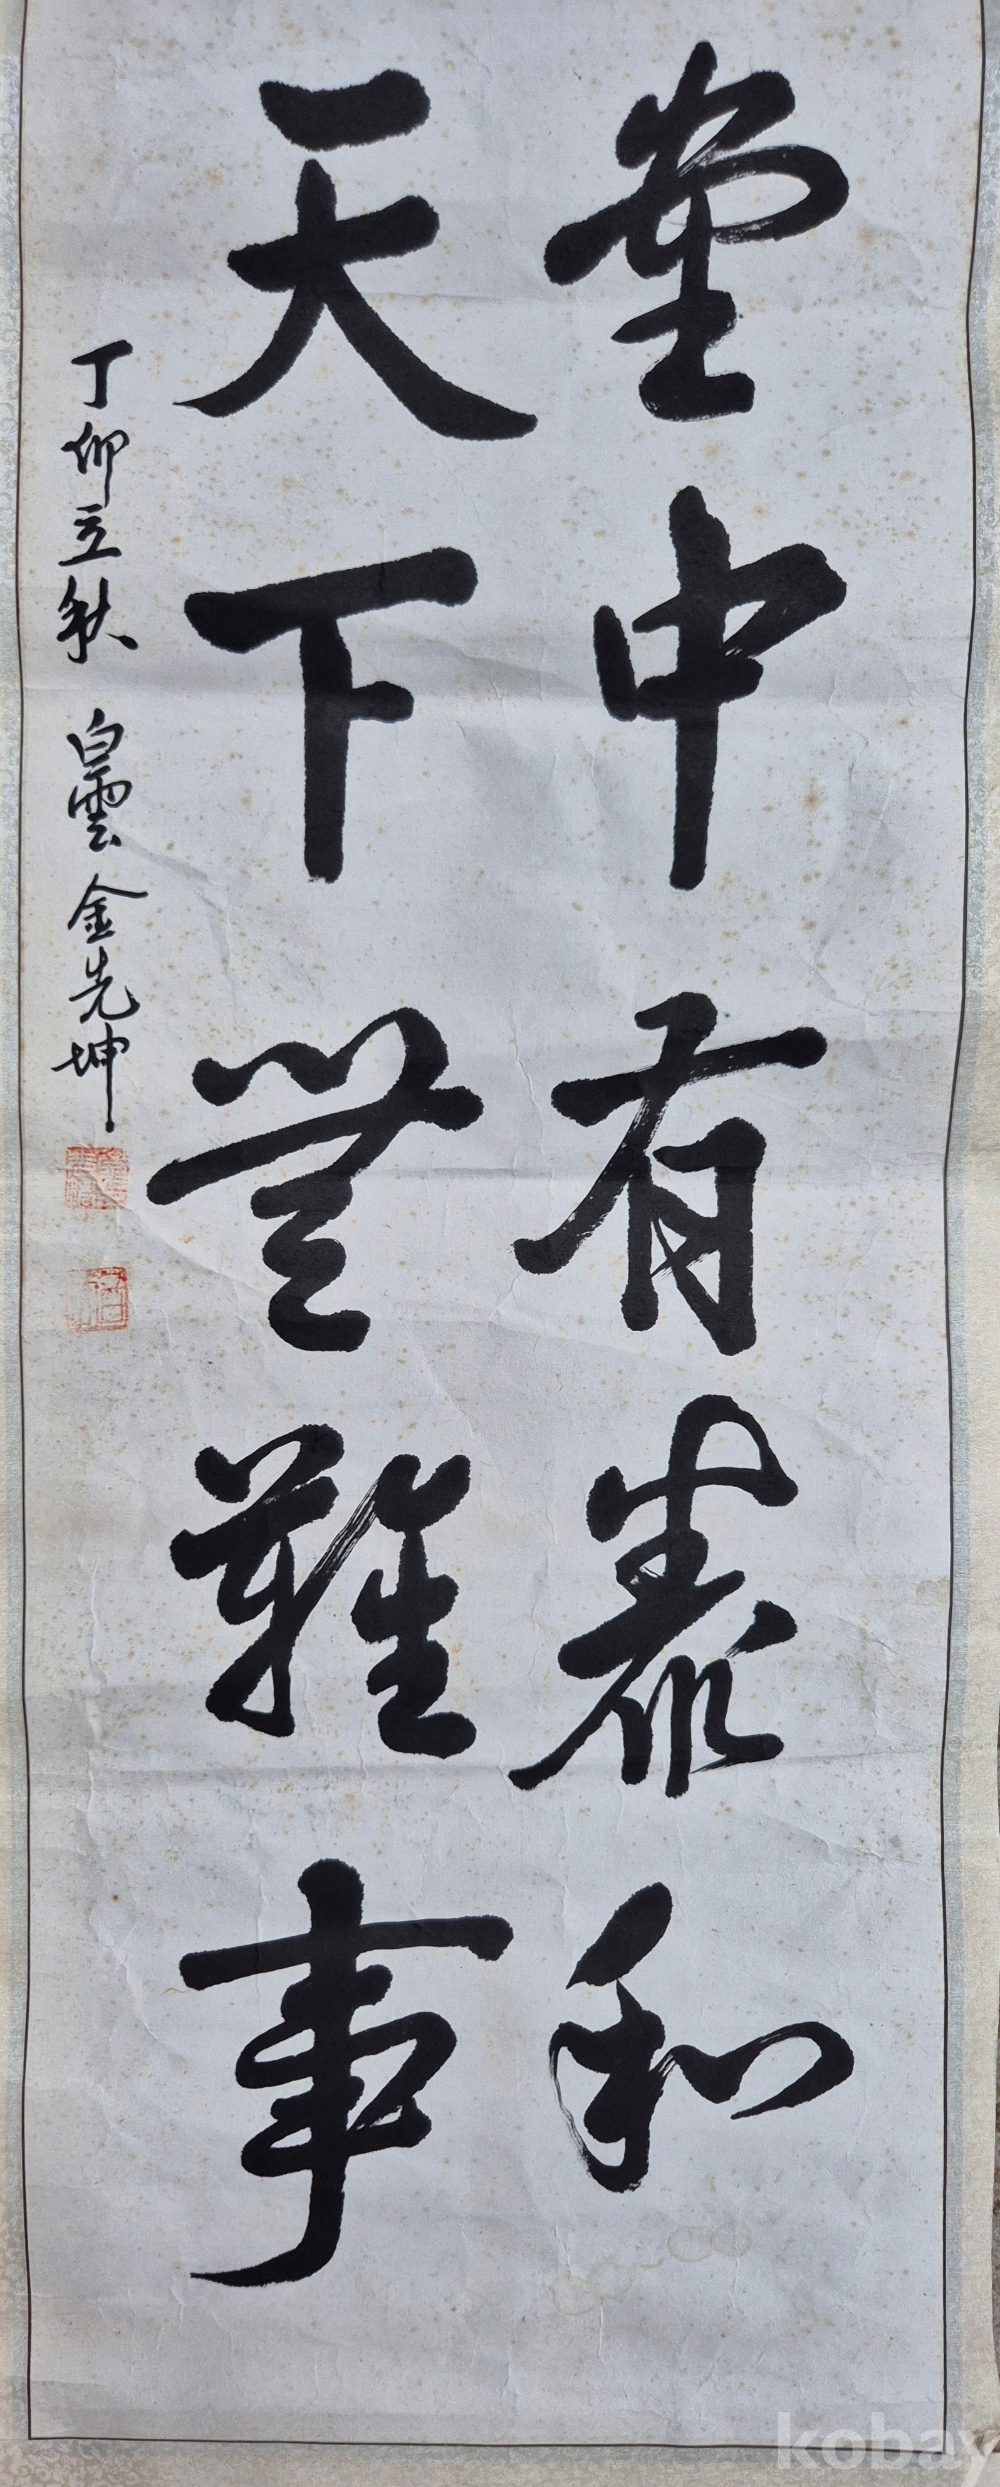 堂中有泰和
天下無難事
丁卯立秋 白雲 金先坤
kobay